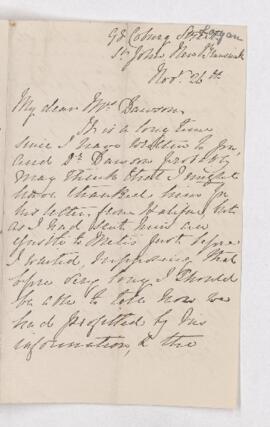 98 Coburg St
St John New Brunswick
Nov. 26th
My dear Mrs Dawson,
It is a long time
since I have written to you
and Dr Dawson probably
may think that I might
have thanked him for
his letter, from Halifax, but
as I had sent him an
epistle to Metis just before
I waited, supposing that
before very long I should
be able to tell how we
had profitted by his
information, & the